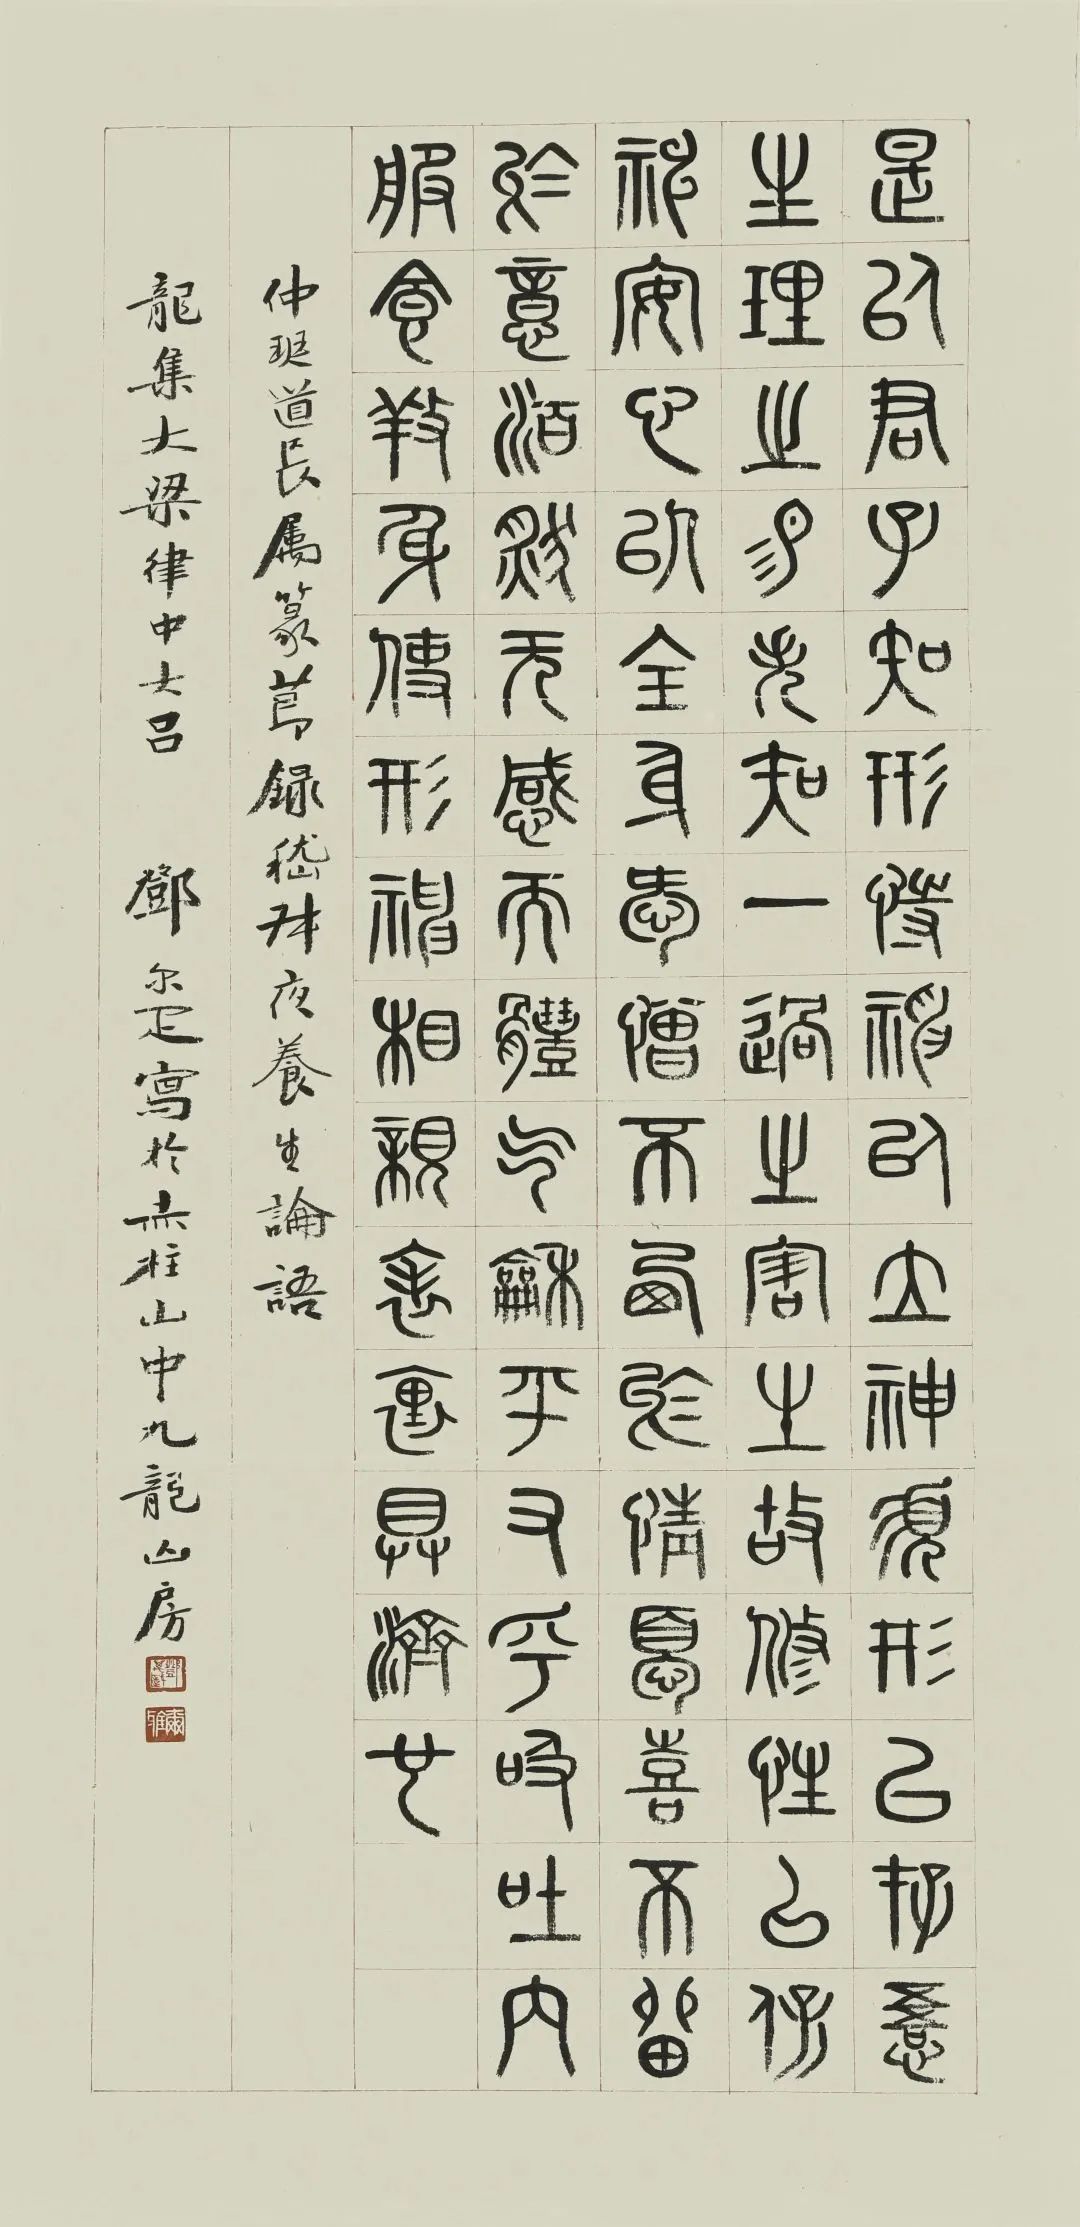 是以君子知形恃神以立神須形以存悟
生理之易失知一過之害生故修性以保
神安心以全身愛憎不西於情憂喜不留
於意泊然无感而體气龢平又乎吸吐内
服食養身使形神相親表裏具濟也
仲珽道長属篆節録嵇叔夜養生論語
龍集大梁律中大吕 鄧尔疋寫於赤柱山中九龍山房
爾雅